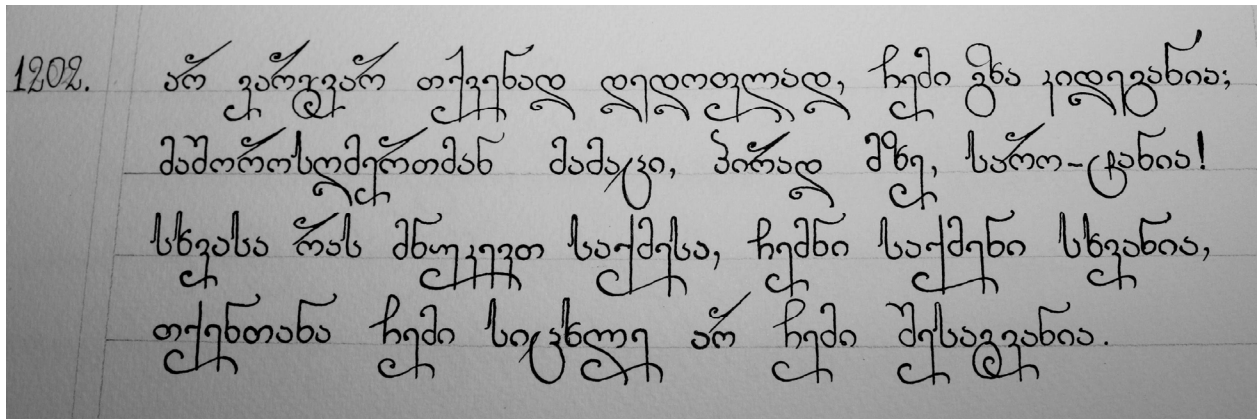 1202. არ ვარგვარ თქვენად დედოფლად, ჩემი გზა კიდეგანია;
მაშოროს ღმერთმან მამაცი, პირად მზე, სარო-ტანია!
სხვასა რას მნუკევთ საქმესა, ჩემნი საქმენი სხვანია,
თქვენთანა ჩემი სიცოცხლე არ ჩემი შესაგვანია.